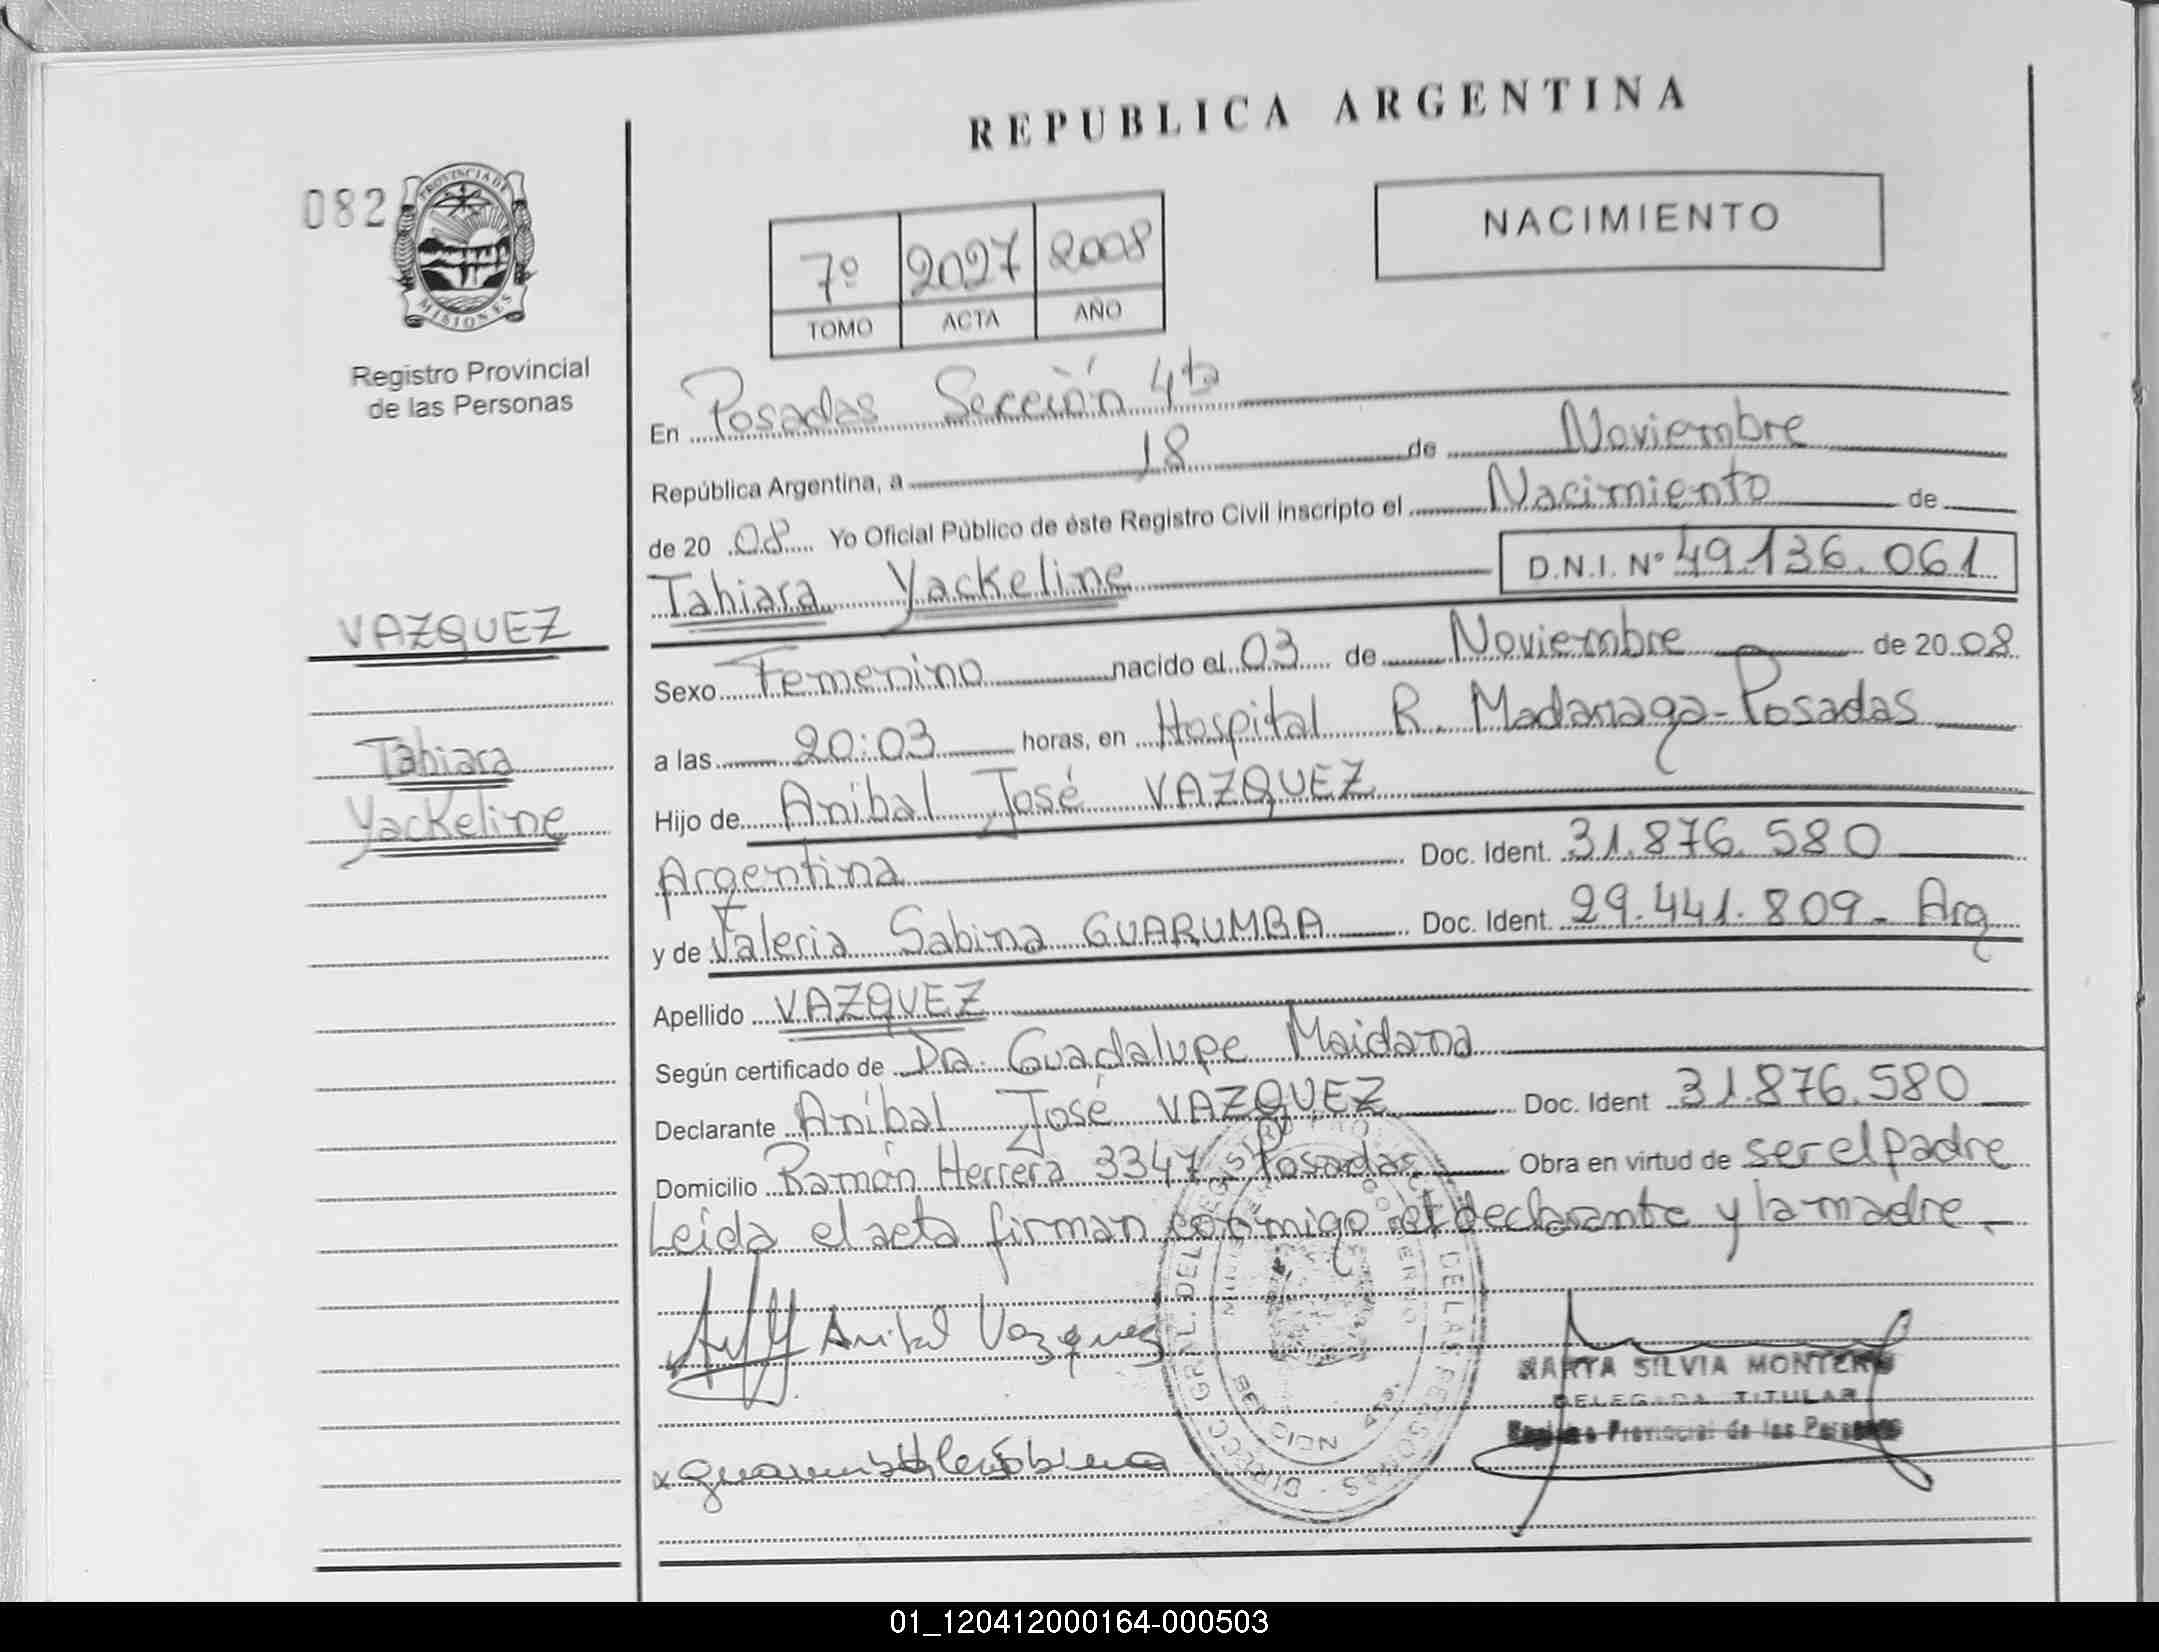 REPUBLICA ARGENTINA
082
PROVINCIA DE
MISIONES
Registro Provincial
de las Personas
7º 2027 2008
TOMO ACTA AÑO
NACIMIENTO
En Posadas Sección 4ta
República Argentina, a 18 de Noviembre
de 20 08 Yo Oficial Público de éste Registro Civil inscripto el Nacimiento de
Tahiara Yackeline D.N.I. Nº 49.136.061
VAZQUEZ
Tahiara
Yackeline
Sexo Femenino nacido el 03 de Noviembre de 20 08
a las 20:03 horas, en Hospital R. Madariaga - Posadas
Hijo de Anibal José VAZQUEZ
Argentina Doc. Ident. 31.876.580
y de Valeria Sabina GUARUMBA Doc. Ident. 29.441.809 - Arg
Apellido VAZQUEZ
Según certificado de Dra. Guadalupe Maidana
Declarante Anibal José VAZQUEZ Doc. Ident 31.876.580
Domicilio Ramón Herrera 3347 Posadas Obra en virtud de ser el padre
Leida el acta firman conmigo el declarante y la madre
Anibal Vazquez
MARTA SILVIA MONTERO
DELEGADA TITULAR
Registro Provincial de las Personas
01_120412000164-000503